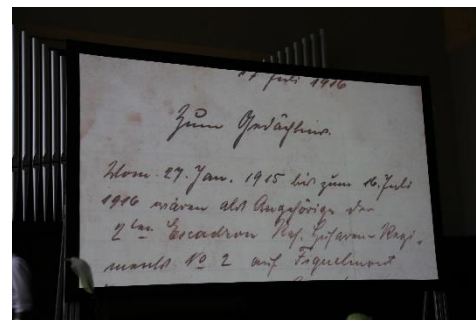 17 Juli 1916
Zum Gedächtnis.
Vom 27. Jan. 1915 bis zum 16. Juli
1916 waren als Angehörige der
2ten Escadron Res. Husaren-Regi-
ments No 2 auf Fiquelmont